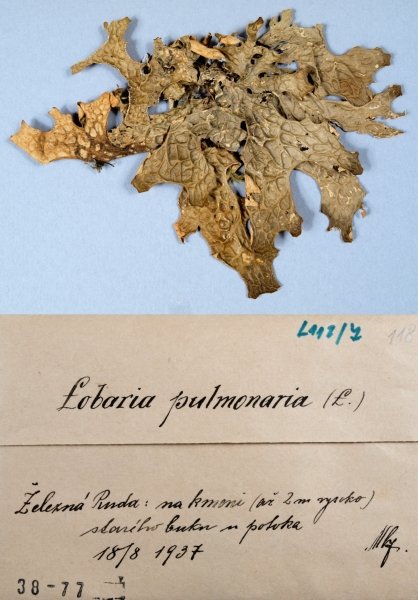 L118/7 118
Lobaria pulmonaria (L.)
Železná Ruda: na kmeni (až 2 m vysoko)
starého buku u potoka
18/8 1937
38-77